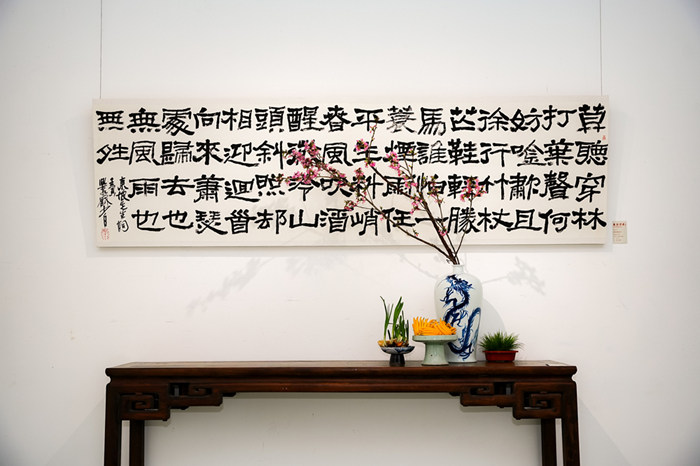 莫聽穿林
打葉聲何
妨吟嘯且
徐行竹杖
芒鞋輕勝
馬誰怕一
蓑煙雨任
平生料峭
春風吹酒
醒微冷山
頭斜照却
相迎迴首
向來蕭瑟
處歸去也
無風雨也
無